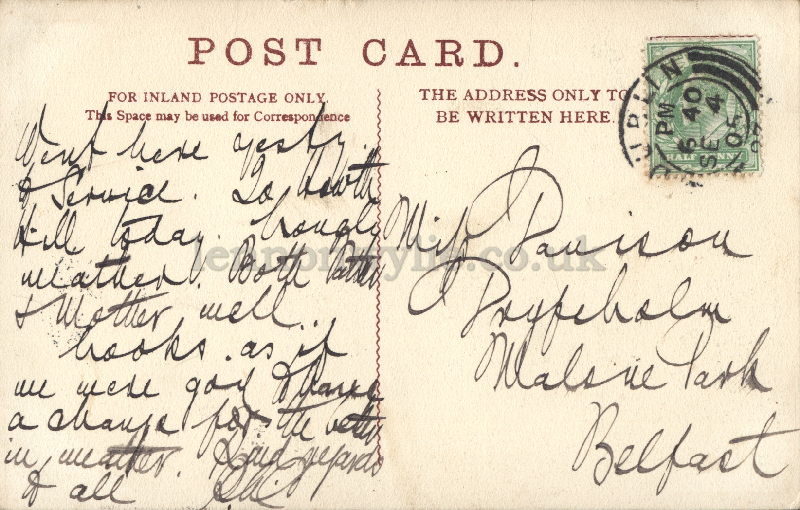 POST CARD.
FOR INLAND POSTAGE ONLY.
This Space may be used for Correspondence
THE ADDRESS ONLY TO
BE WRITTEN HERE.
DUBLIN
6 40 PM
SE 4
05
HALFPENNY
Went here yesty.
& Service. To Howth
Hill today. Lovely
weather. Both Father
& Mother well.
Looks as if
we were going to have
a change for the
in weather. Kind regards
to all
Miss Davison
Malone Park
Belfast
lennonwylie.co.uk